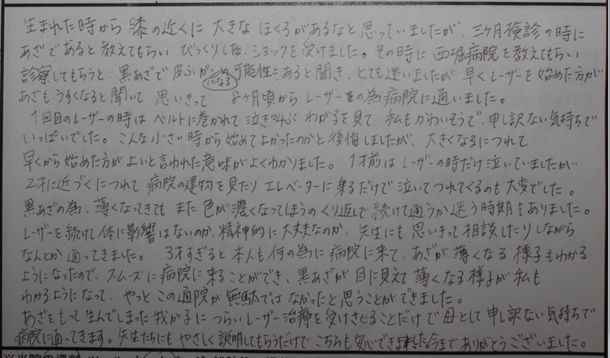 生まれた時から膝の近くに大きなほくろがあるなと思っていましたが、三ヶ月検診の時に
あざであると教えてもらいびっくりした後、ショックを受けました。その時に西堀病院を教えてもらい
診察してもらうと、黒あざで皮ふガンになる可能性もあると聞き、とても迷いましたが早くレーザーを始めた方が
あざもうすくなると聞いて思いきって8ヶ月頃からレーザーの為病院に通いました。
1回目のレーザーの時はベルトに巻かれて泣きさけぶわが子を見て私もかわいそうで、申し訳ない気持ちで
いっぱいでした。こんな小さい時から始めてよかったのかと後悔しましたが、大きくなるにつれて
早くから始めた方がよいと言われた意味がよくわかりました。1才前はレーザーの時だけ泣いていましたが
2才に近づくにつれて病院の建物を見たりエレベーターに乗るだけで泣いてつれてくるのも大変でした。
黒あざの為、薄くなってきてもまた色が濃くなってしまうのくり返しで続けて通うか迷う時期もありました。
レーザーを続けて体に影響はないのか、精神的に大丈夫なのか、先生にも思いきって相談したりしながら
なんとか通ってきました。3才すぎると本人も何の為に病院に来て、あざが薄くなる様子もわかる
ようになったので、スムーズに病院に来ることができ、黒あざが目に見えて薄くなる様子が私も
わかるようになって、やっとこの通院が無駄ではなかったと思うことができました。
あざをもって生んでしまった我が子につらいレーザー治療を受けさせることだけで母として申し訳ない気持ちで
病院に通ってきます。先生たちにもやさしく説明してもらうだけでこちらも安心できました今までありがとうございました。